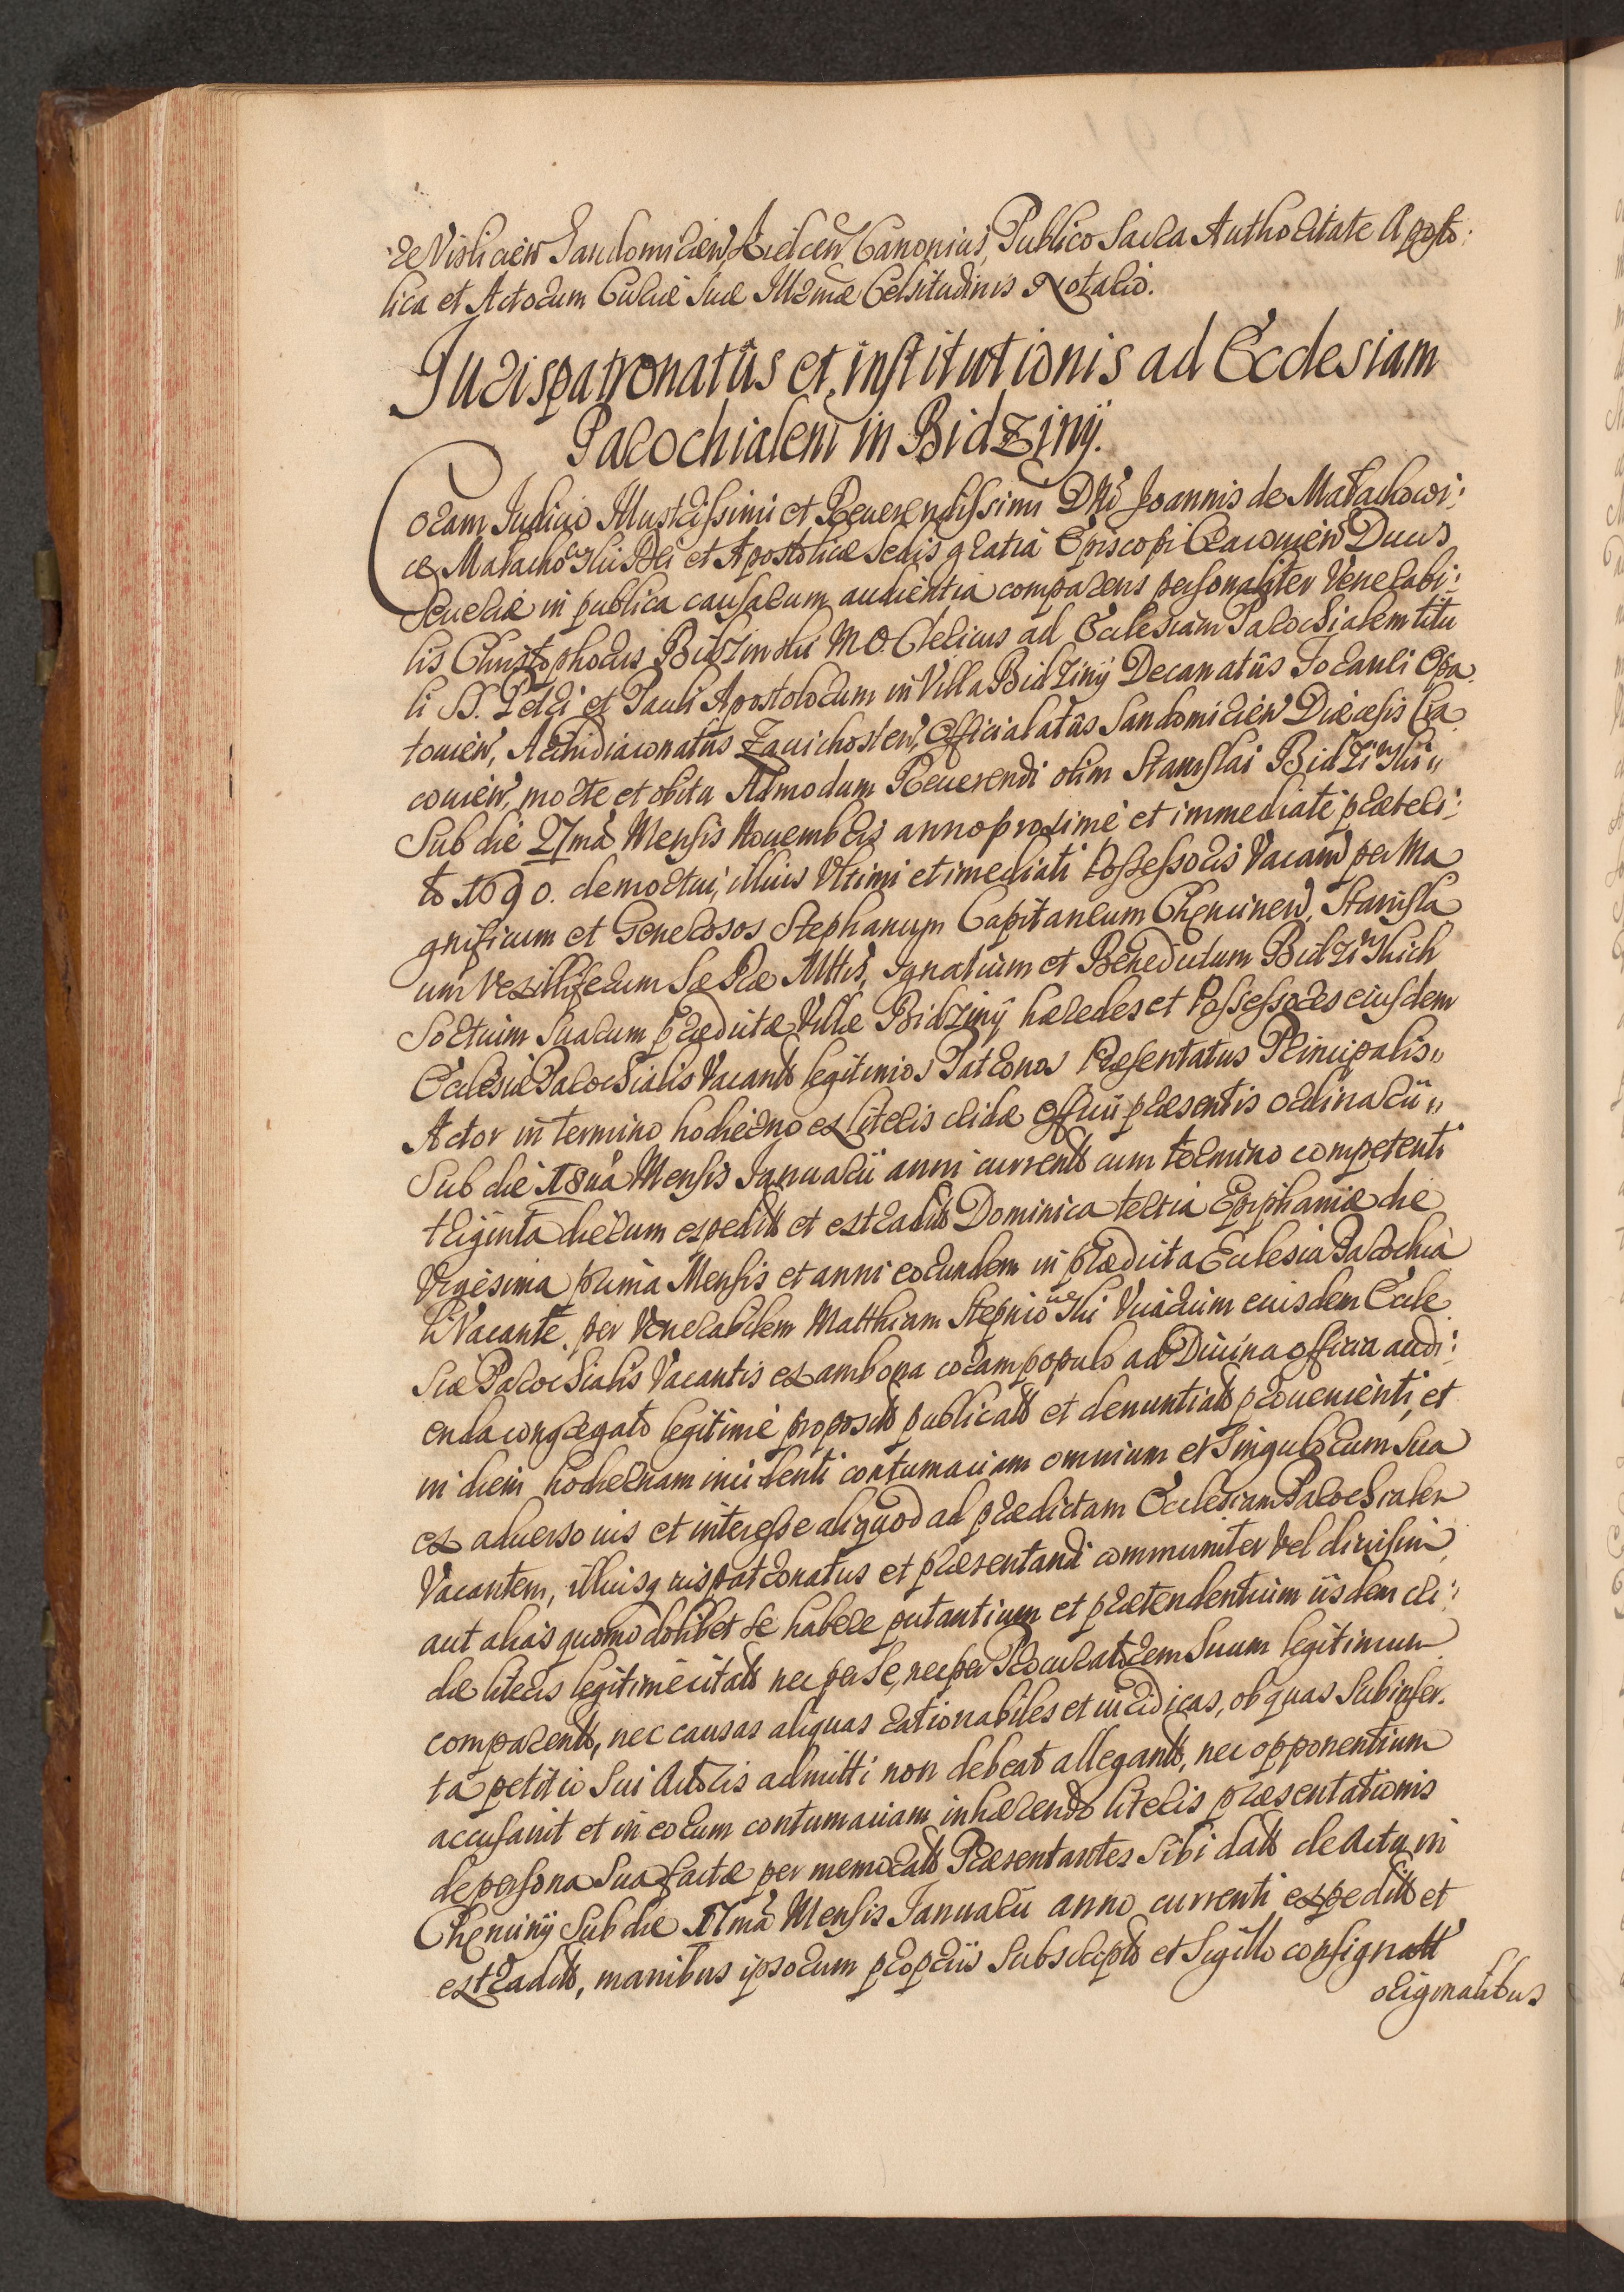 re Vislicień Sandomirień, Kielceń Canonicus, Publico Sacra Authoritate Aposto:
lica et Actorum Curiæ Suæ Illrmæ Celsitudinis Notario.
Jurispatronatûs et institutionis ad Ecclesiam
Parochialem in Bidziny.
Coram Judicio Illustrissimi et Reverendissimi Dñi Joannis de Małachowi:
ce Małachowski Dei et Apostolicæ Sedis gratiâ Episcopi Cracouień Ducis
Seueriæ in publica causarum audientia comparens personaliter Venerabi:
lis Christophorus Bidzinski M O. Clericus ad Ecclesiam Parochialem titu
li SS. Petri et Pauli Apostolorum in Villa Bidziny Decanatûs foranei Opa
touień, Archidiaconatûs Zauichosteń, Officialatûs Sandomirień Diæcesis Cra
couień, morte et obitu Admodum Reuerendi olim Stanislai Bidzinski
Sub die 27mâ Mensis Nouembris anno proximè et immediatè præteri:
to 1690. demortui, illius Vltimi et imediati Possessoris Vacań per Ma
gnificum et Generosos Stephanum Capitaneum Chęcineń, Stanisla
um Vexilliferum Sæ Ræ Mttis, Ignatium et Benedictum Bidzinskich
Sortium Suarum prædictæ Villæ Bidziny hæredes et Possessores eiusdem
Ecclesiæ Parochialis Vacantis legitimos Patronos Præsentatus Principalis
Actor in termino hodierno ex literis cridæ Officii præsentis ordinarii
Sub die 18uâ Mensis Januarii anni currentis cum termino competenti
triginta dierum expeditis et extraditis Dominica tertia Epiphaniæ die
Vigesima prima Mensis et anni eorundem in prædicta Ecclesia Parochia
li Vacante per Venerabilem Matthiam Stepniowski Vicarium eiusdem Eccle
siæ Parochialis Vacantis ex ambona coram populo ad Diuina officia audi:
enda congregato legitimè propositis publicatis et denuntiatis prouenienti, et
in diem hodiernam incidenti contumaciam omnium et Singulorum Sua
ex aduerso ius et interesse aliquod ad prædictam Ecclesiam Parochialem
Vacantem, illiusq iuspatronatus et præsentandi communiter vel diuisim
aut alias quomodolibet se habere putantium et prætendentium iisdem cri:
dæ literis legitimè citatis nec per se, nec per Procuratorem Suum legitimum
comparentis, nec causas aliquas rationabiles et iuridicas, ob quas Subinser:
ta petitio Sui Actoris admitti non debeat allegantis, nec opponentium
accusauit et in eorum contumaciam inhærendo literis præsentationis
de persona Sua factæ per memoratos Præsentantes Sibi datis de Actu in
Chęciny Sub die 17mâ Mensis Januarii anno currenti expeditis et
extraditis, manibus ipsorum propriis Subscriptis et Sigillo consignatt
originalibus